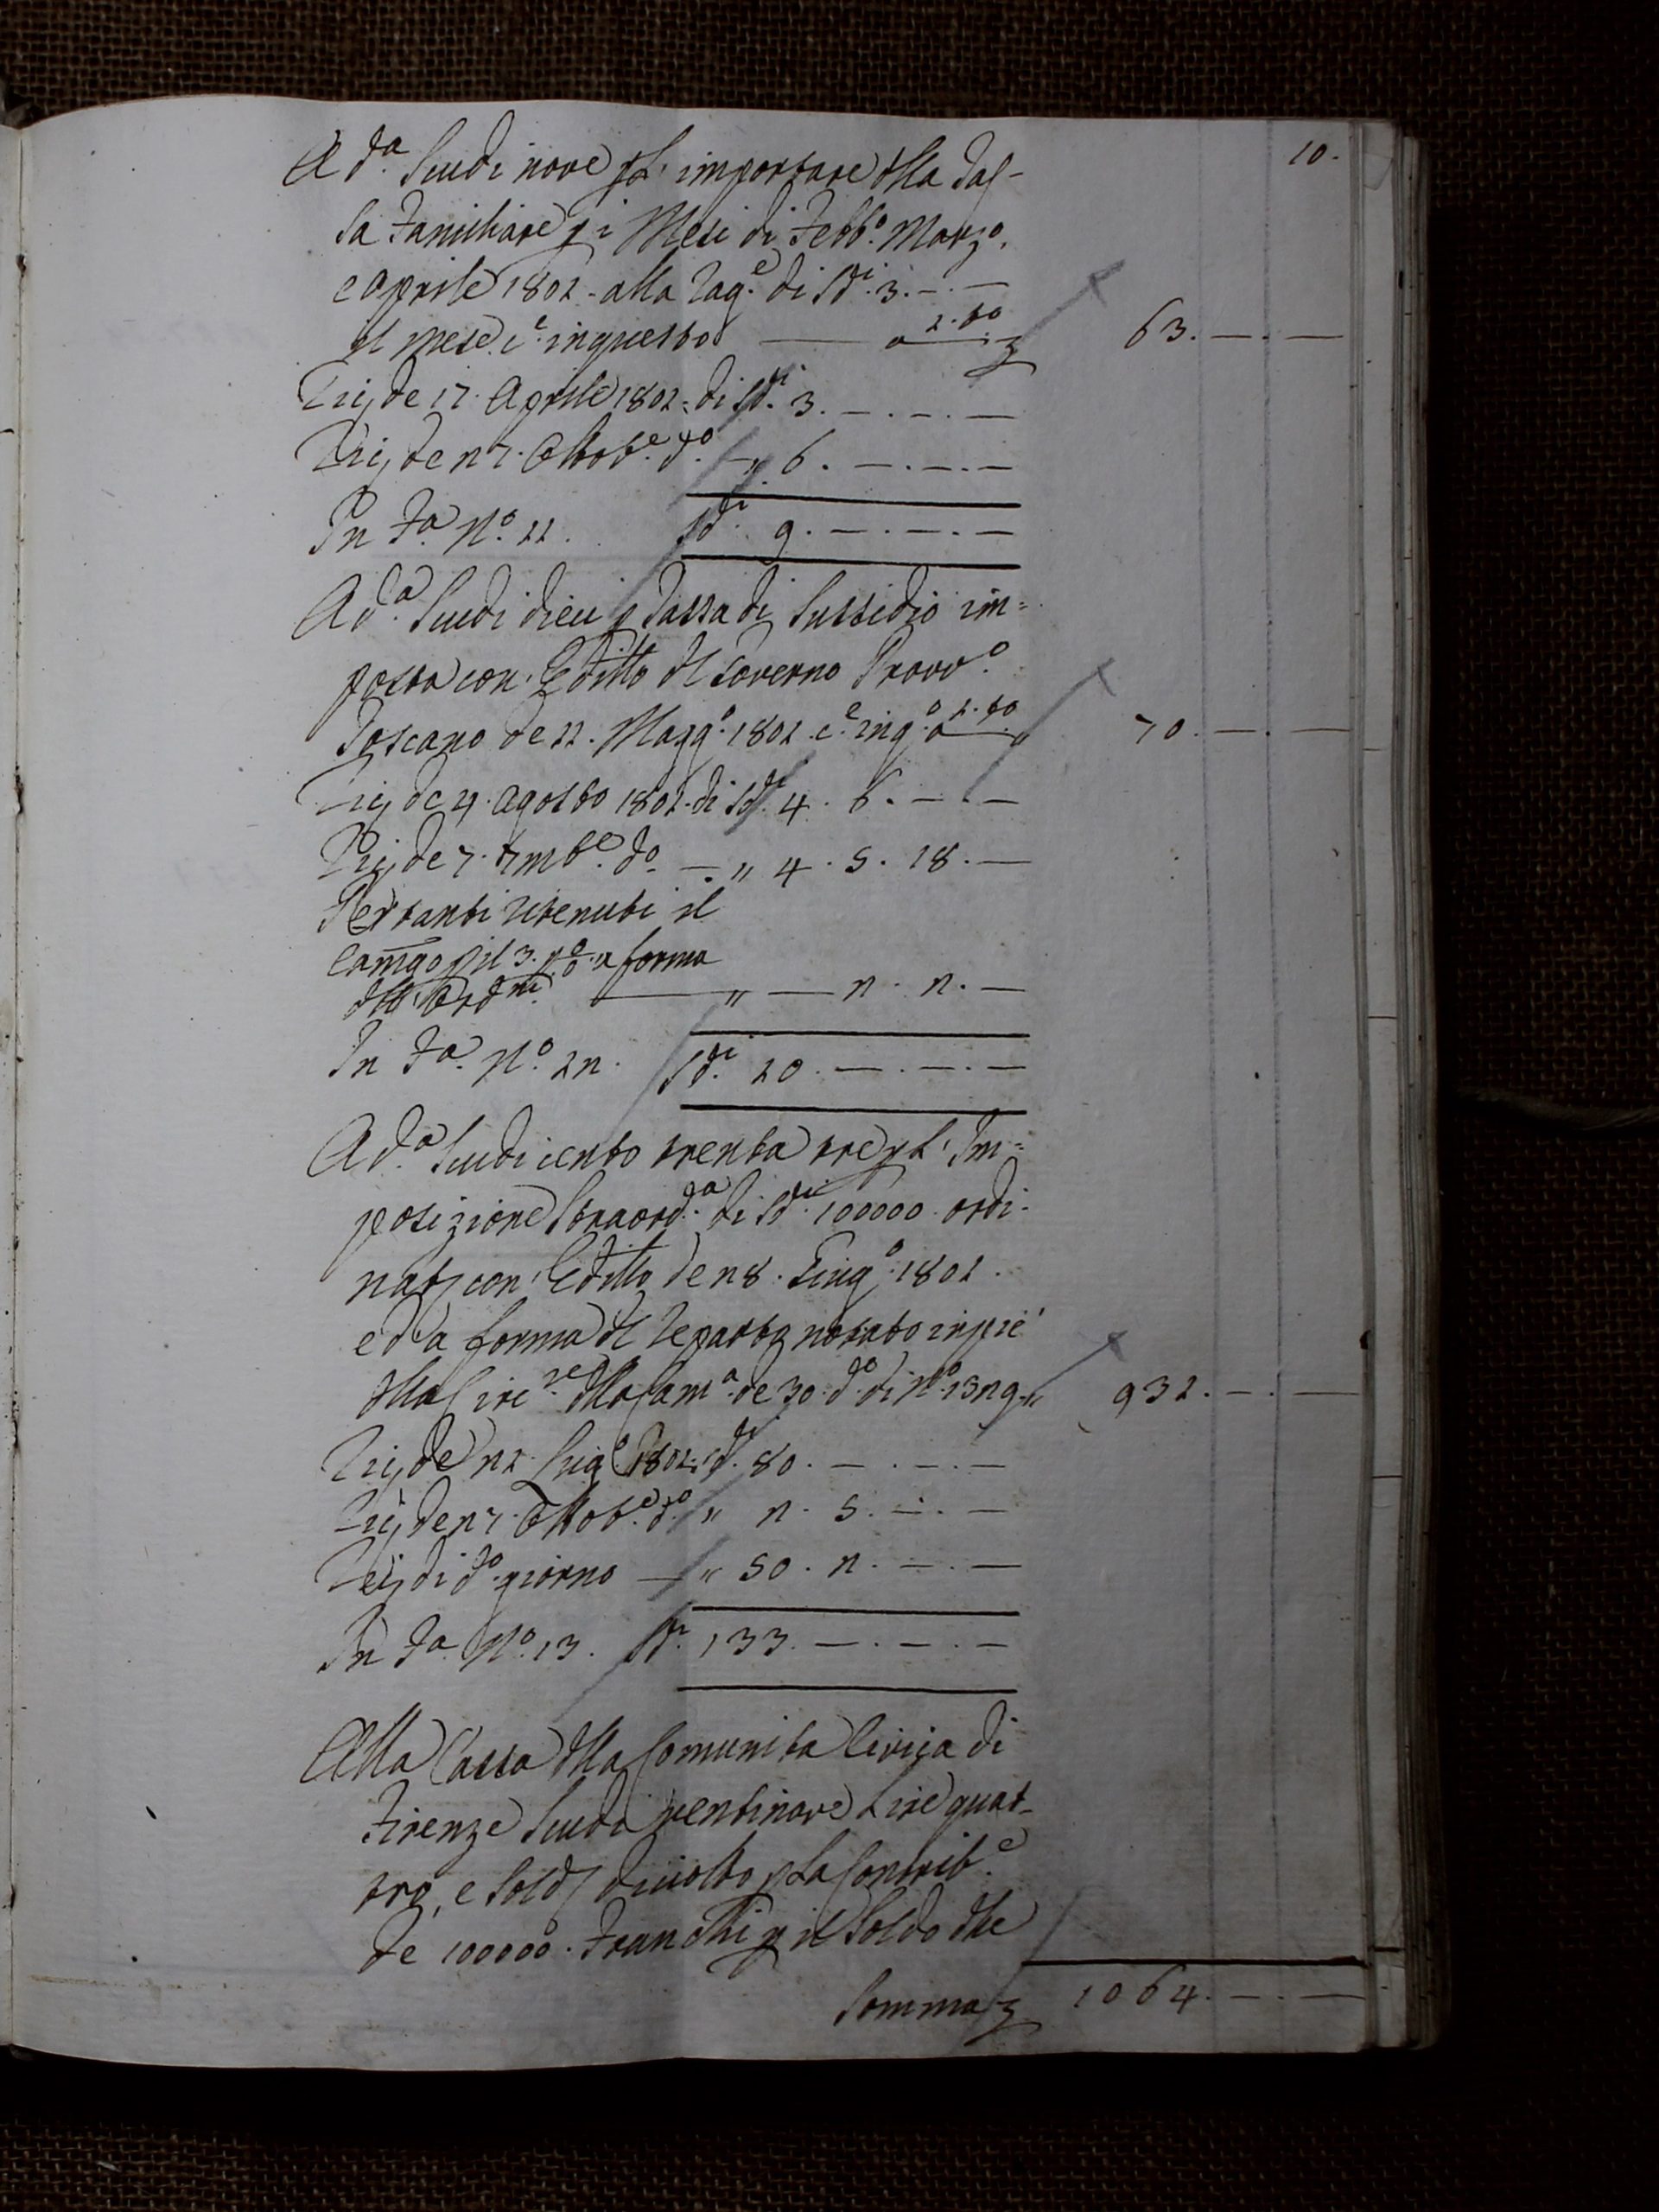 10.
A d.a Scudi nove p l'importare della Tas-
sa Familiare p i Mesi di Febb.o Marzo,
e Aprile 1801. alla rag.e di Sd.i 3. — . —
il mese c.e in questo — a 2.60 63. — . —
de 17. Aprile 1801. di Sd.i 3. — . — . —
de 27. Ottob.e d.o — " 6. — . — . —
In F.a N.o 11. Sd.i 9. — . — . —
A d.a Scudi dieci p Tassa di Sussidio im=
posta con Editto del Governo Provv.o
Toscano de 11. Magg.o 1801. c.e in q.o a 2.60 70. — . —
de 4. Agosto 1801. di Sd.i 4. 6. — . —
de 7. 7mb.e d.o — . " 4. 5. 18. —
Per tanti ritenuti il
Camgo p il 3. p o/o a forma
dell'Ord.ni — " — 2. 2. —
In F.a N.o 12. Sd.i 10. — . — . —
A d.a Scudi cento trenta tre p l'Im=
posizione Straord.a di Sd.i 100000. ordi-
nata con Editto de 28. Giug.o 1801.
ed a forma del Reparto notato in piè
della Circ.re della Cam.a de 30. d.o di N.o 1329. " 931. — . —
de 22. Lug.o 1801. Sd.i 80. — . — . —
de 27. Ottob.e d.o " 2. 5. — . —
di d.o giorno — " 50. 2. — . —
In F.a N.o 13. Sd.i 133. — . — . —
Alla Cassa della Comunita Civica di
Firenze Scudi ventinove Lire quat-
tro, e Soldi diciotto p La Contrib.e
de 100000. Franchi p il Soldo delle
Somma 1064. — . —